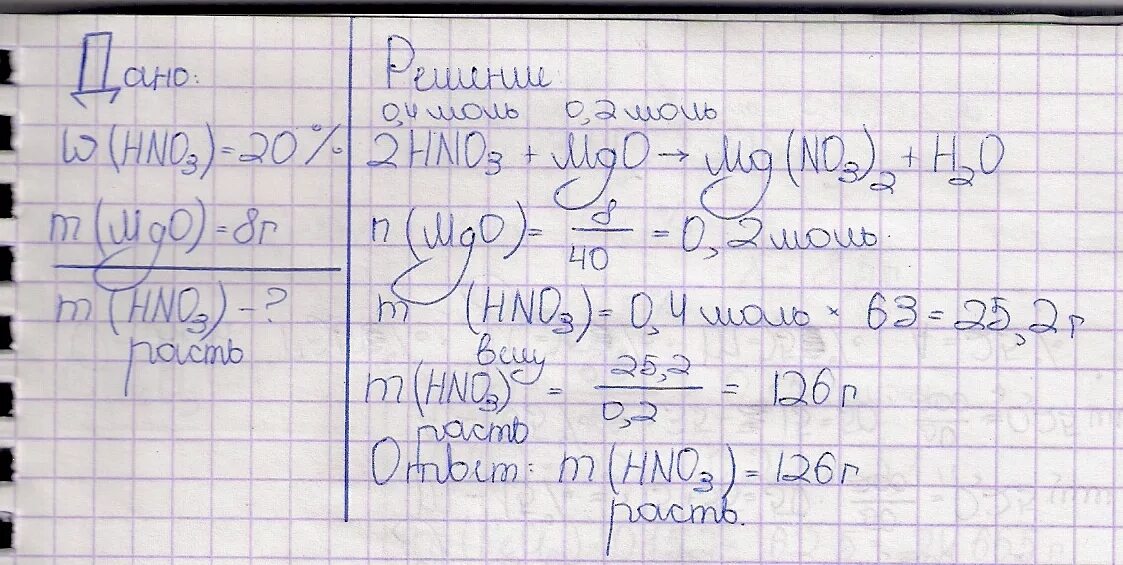 Дано:
W(HNO₃)=20%
m(MgO)=8г
m(HNO₃)-?
расть
Решение
0,4моль 0,2моль
2HNO₃ + MgO → Mg(NO₃)₂ + H₂O
n(MgO)= 8/40 = 0,2моль.
m (HNO₃)= 0,4моль × 63 = 25,2г
вещ
m(HNO₃) = 25,2/0,2 = 126г
расть
Ответ: m(HNO₃)=126г
расть.